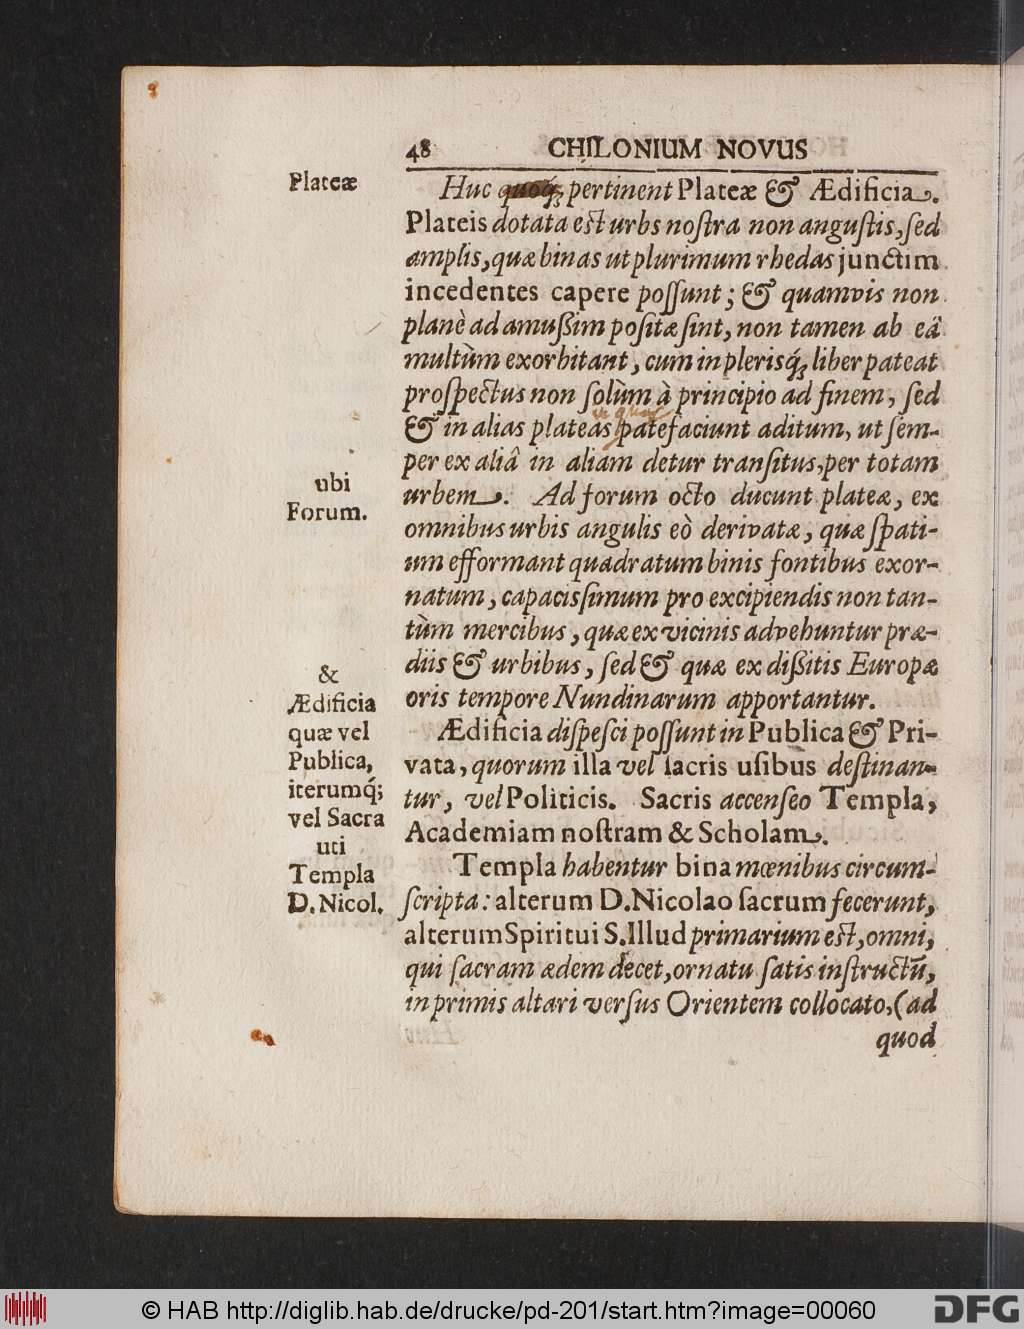 48 CHILONIUM NOVUS
Plateæ
Huc quoq́; pertinent Plateæ & Ædificia.
Plateis dotata est urbs noſtra non anguſtis, ſed
amplis, quæ binas ut plurimum rhedas junctim
incedentes capere poſſunt; & quamvis non
planè ad amuſſim poſitæ ſint, non tamen ab eâ
multùm exorbitant, cum in plerisq́; liber pateat
proſpectus non ſolùm à principio ad finem, ſed
& in alias plateas patefaciunt aditum, ut ſem-
per ex aliâ in aliam detur tranſitus, per totam
urbem. Ad forum octo ducunt plateæ, ex
ubi
Forum.
omnibus urbis angulis eò derivatæ, quæ ſpati-
um efformant quadratum binis fontibus exor-
natum, capacisſimum pro excipiendis non tan-
tùm mercibus, quæ ex vicinis advehuntur præ-
diis & urbibus, ſed & quæ ex diſſitis Europæ
oris tempore Nundinarum apportantur.
&
Ædificia
quæ vel
Publica,
iterumq́;
vel Sacra
uti
Templa
D. Nicol.
Ædificia diſpeſci poſſunt in Publica & Pri-
vata, quorum illa vel ſacris uſibus deſtinan-
tur, vel Politicis. Sacris accenſeo Templa,
Academiam noſtram & Scholam.
Templa habentur bina mœnibus circum-
ſcripta: alterum D. Nicolao ſacrum fecerunt,
alterum Spiritui S. Illud primarium est, omni,
qui ſacram ædem decet, ornatu ſatis inſtructū,
inprimis altari verſus Orientem collocato, (ad
quod
© HAB http://diglib.hab.de/drucke/pd-201/start.htm?image=00060
DFG